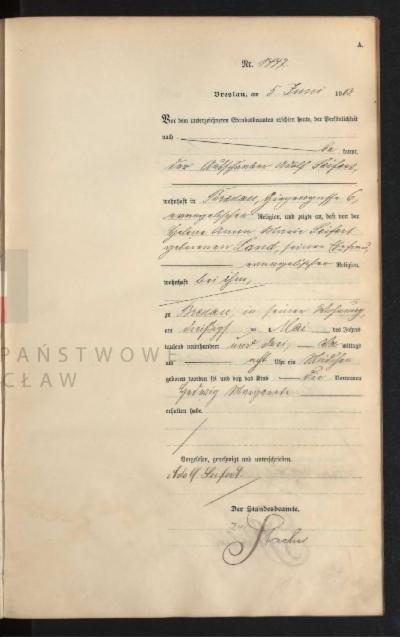 A.
Nr. 1447.
Breslau, am 5. Juni 190
Vor dem unterzeichneten Standesbeamten erschien heute, der Persönlichkeit
nach be kannt,
der Adolf Seifert,
wohnhaft in Breslau, 6,
evangelischer Religion, und zeigte an, daß von der
Helene Anna Marie Seifert
geborenen Land, seiner Ehefrau,
evangelischer Religion,
wohnhaft bei ihm,
zu Breslau, in seiner Wohnung,
am Mai des Jahres
tausend neunhundert und drei, mittags
um acht Uhr ein Mädchen
geboren worden sei und daß das Kind die Vornamen
Hedwig Margarete
erhalten habe.
PAŃSTWOWE
CŁAW
Vorgelesen, genehmigt und unterschrieben.
Adolf Seifert
Der Standesbeamte.